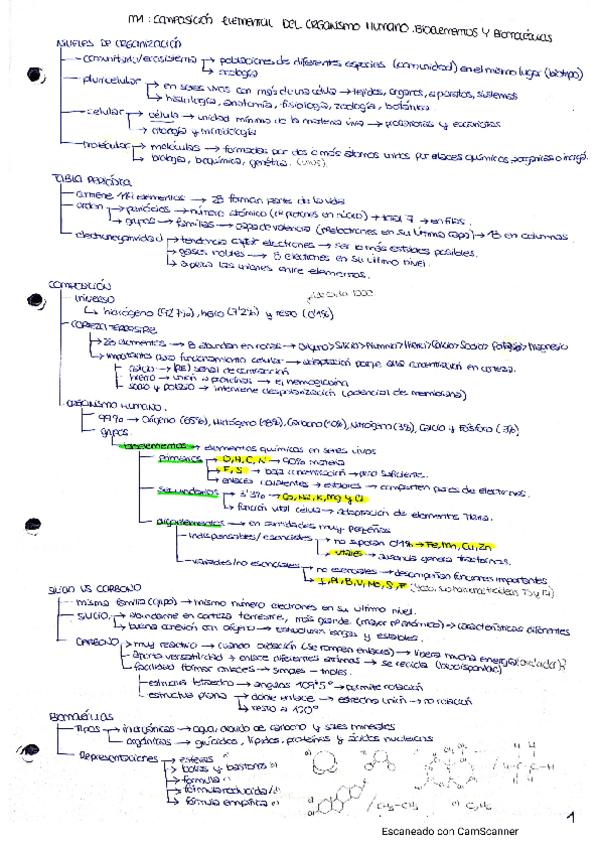 M1: COMPOSICIÓN ELEMENTAL DEL ORGANISMO HUMANO. BIOELEMENTOS Y BIOMOLÉCULAS
NIVELES DE ORGANIZACIÓN
comunitario/ecosistema → poblaciones de diferentes especies (comunidad) en el mismo lugar (biotopo)
→ ecología
pluricelular → en seres vivos con más de una célula → tejidos, órganos, aparatos, sistemas
→ histología, anatomía, fisiología, zoología, botánica
celular → célula → unidad mínima de la materia viva → procariotas y eucariotas
→ citología y microbiología
molecular → moléculas → formadas por dos o más átomos unidos por enlaces químicos,
→ biología, bioquímica, genética. (virus)
TABLA PERIÓDICA
elementos → 28 forman parte de la vida
orden → periodos → número atómico (nº protones en núcleo) → total 7 → en filas.
→ grupos → familias → capa de valencia (nº electrones en su última capa) → 18 en columnas.
electronegatividad → tendencia captar electrones → ser lo más estables posibles.
→ gases nobles → 8 electrones en su último nivel.
→ supera las uniones entre elementos.
COMPOSICIÓN
universo
→ hidrógeno (92'7%), helio (7'2%) y resto (0'1%)
CORTEZA TERRESTRE
→ 28 elementos → 8 abundan en rocas → Oxígeno>Silicio>Aluminio>Hierro>Calcio>Sodio>Potasio>Magnesio
→ importantes para funcionamiento celular → adaptación porque alta concentración en corteza.
calcio → señal de contracción
hierro → unión a proteínas → ej. hemoglobina
sodio y potasio → interviene despolarización (potencial de membrana)
ORGANISMO HUMANO.
99% → Oxígeno (65%), Hidrógeno (18%), Carbono (10%), Nitrógeno (3%), Calcio y Fósforo (3%)
grupos
bioelementos → elementos químicos en seres vivos
primarios → O, H, C, N → 90% materia
→ P, S → baja concentración → pero suficiente.
→ enlaces covalentes → estables → comparten pares de electrones.
secundarios → 3'3% → Ca, Na, K, Mg y Cl
→ función vital célula → adaptación de elementos Tierra.
oligoelementos → en cantidades muy pequeñas
indispensables/esenciales → no superan 0'1% → Fe, Mn, Cu, Zn
→ vitales → ausencia genera trastornos.
variables/no esenciales → no esenciales → desempeñan funciones importantes
→ I, Al, B, V, Mo, S, F
SILICIO VS CARBONO
misma familia (grupo) → mismo número electrones en su último nivel.
SILICIO → abundante en corteza terrestre, más grande (mayor nº atómico) → características diferentes
→ buena conexión con oxígeno → estructuras largas y estables.
CARBONO → muy reactivo → cuando oxidación (se rompen enlaces) → libera mucha energía
→ aporta versatilidad → enlace diferentes átomos → se recicla
→ facilidad formar enlaces → simples - triples.
estructura tetraedro → ángulos 109'5° → permite rotación
estructura plana → doble enlace → estrecha unión → no rotación
→ resto a 120°
BIOMOLÉCULAS
Tipos → inorgánicas → agua, dióxido de carbono y sales minerales
→ orgánicas → glúcidos, lípidos, proteínas y ácidos nucleicos
Representaciones → esferas
→ bolas y bastones
→ fórmula
→ fórmula reducida
→ fórmula empírica
1
Escaneado con CamScanner